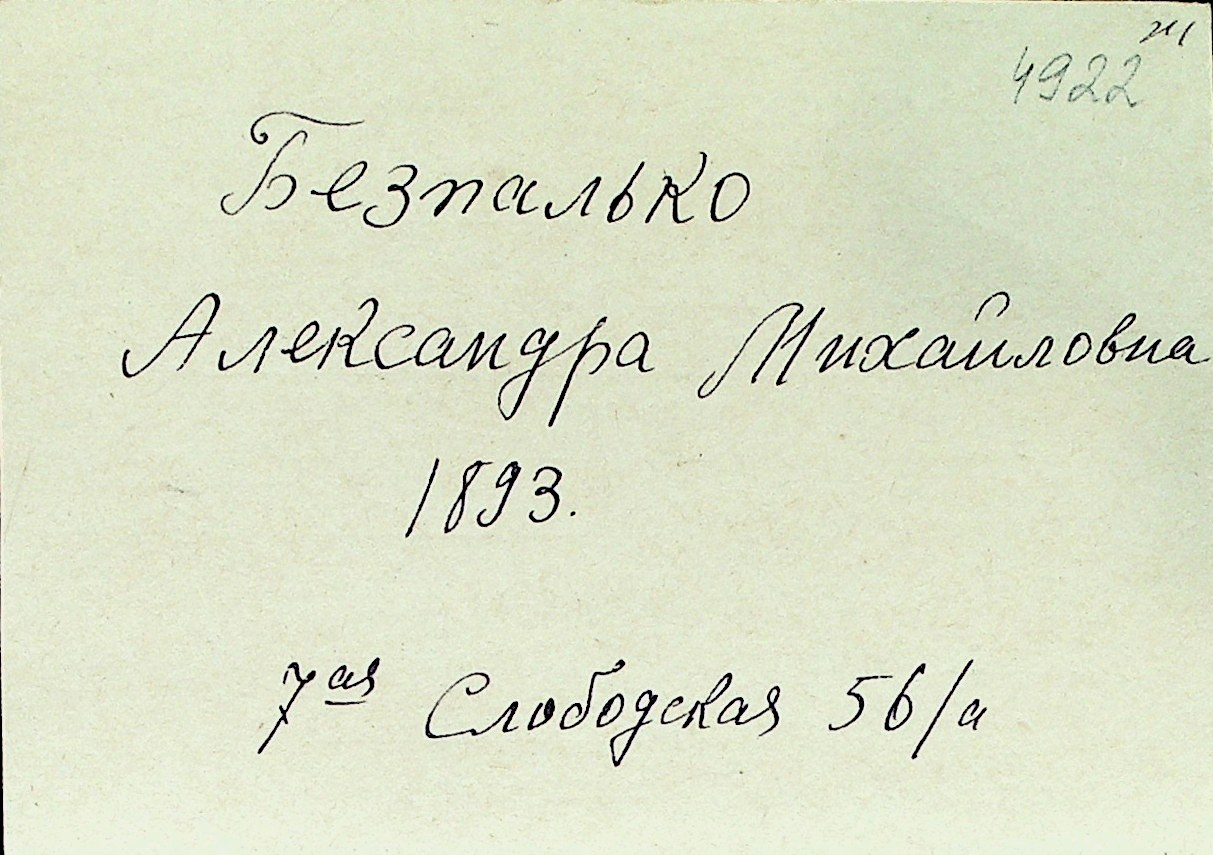 4922
Безпалько
Александра Михайловна
1893.
7ая Слободская 56/а